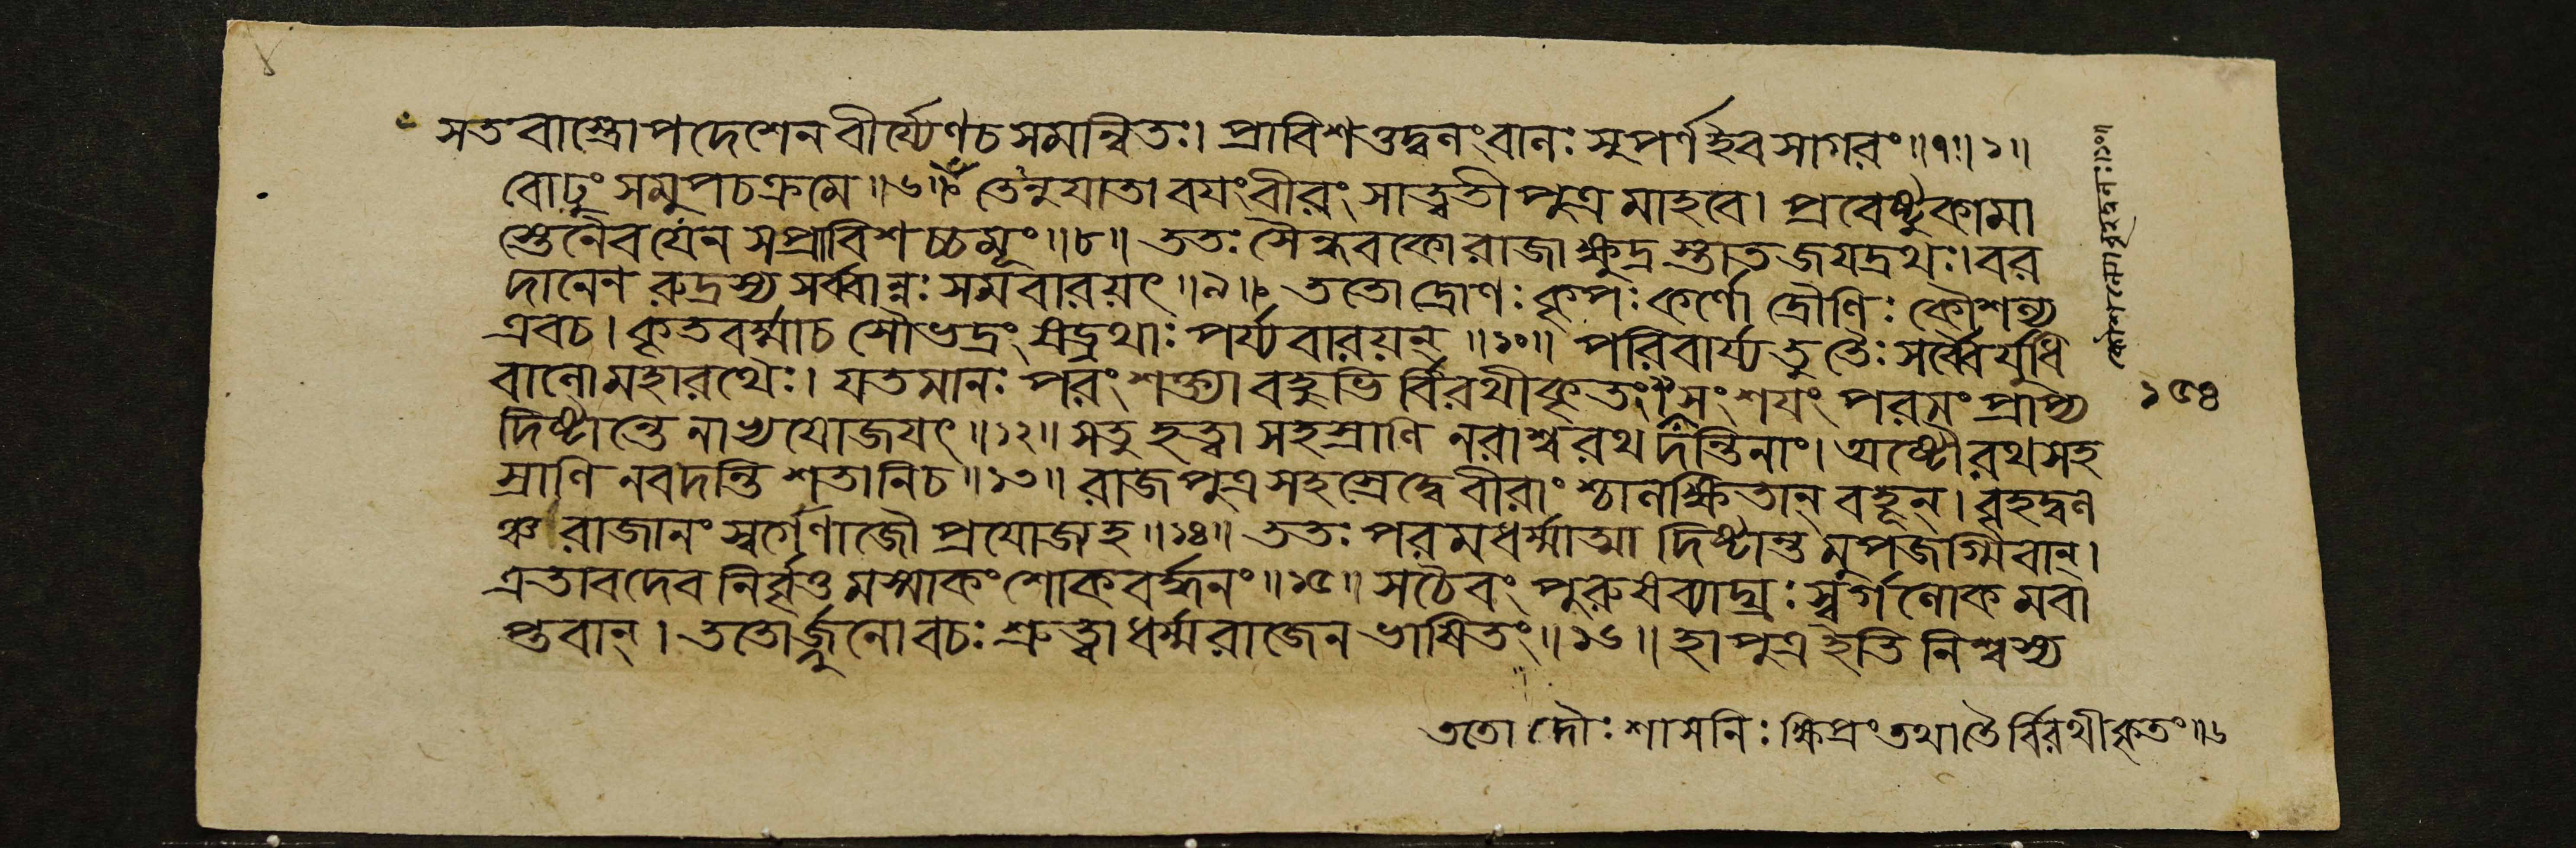 সতবাস্ত্রোপদেশেন বীর্য্যেণ চ সমন্বিতঃ। প্রাবিশত্তদ্বলং বালঃ সুপর্ণ ইব সাগরং॥৭॥১॥
বোঢ়ুং সমুপচক্রমে॥৬॥ তেনুযাতা বযং বীরং সাত্বতী পুত্র মাহবে। প্রবেষ্টুকামা
স্তেনৈব যেন স প্রাবিশচ্চমূং॥৮॥ ততঃ সৈন্ধবকো রাজা ক্ষুদ্র স্তাত জযদ্রথঃ। বর
দানেন রুদ্রস্য সর্ব্বান্নঃ সমবারয়ৎ॥৯॥ ততো দ্রোণঃ কৃপঃ কর্ণো দ্রৌণিঃ কৌশল্য
এবচ। কৃতবর্ম্মাচ সৌভদ্রং ষড্রথাঃ পর্য্যবারয়ন্॥১০॥ পরিবার্য্য তু তৈঃ সর্ব্বৈর্যুধি
বালো মহারথৈঃ। যতমানঃ পরং শক্ত্যা বহুভি র্বিরথীকৃতঃ। সংশযং পরমং প্রাপ্য
দিষ্টান্তে নাভ্যযোজযৎ॥১২॥ সতু হত্বা সহস্রাণি নরাশ্বরথ দন্তিনাং। অষ্টৌ রথ সহ
স্রাণি নবদন্তি শতানিচ॥১৩॥ রাজপুত্র সহস্রেদ্বে বীরাংশ্চালক্ষিতান্ বহূন্। বৃহদ্বল
ঞ্চ রাজানং স্বর্গেণাজৌ প্রযোজ্যহ॥১৪॥ ততঃ পরমধর্ম্মাত্মা দিষ্টান্ত মুপজগ্মিবান্।
এতাবদেব নির্বৃত্ত মস্মাকং শোকবর্দ্ধনং॥১৫॥ সচৈবং পুরুষব্যাঘ্রঃ স্বর্গলোক মবা
প্তবান্। ততোর্জ্জুনো বচঃ শ্রুত্বা ধর্ম্মরাজেন ভাষিতং॥১৬॥ হা পুত্র ইতি নিশ্বস্য
১৫৪
ততো দৌঃশাসনিঃ ক্ষিপ্রং তথা তৈ র্বিরথীকৃতং॥৬